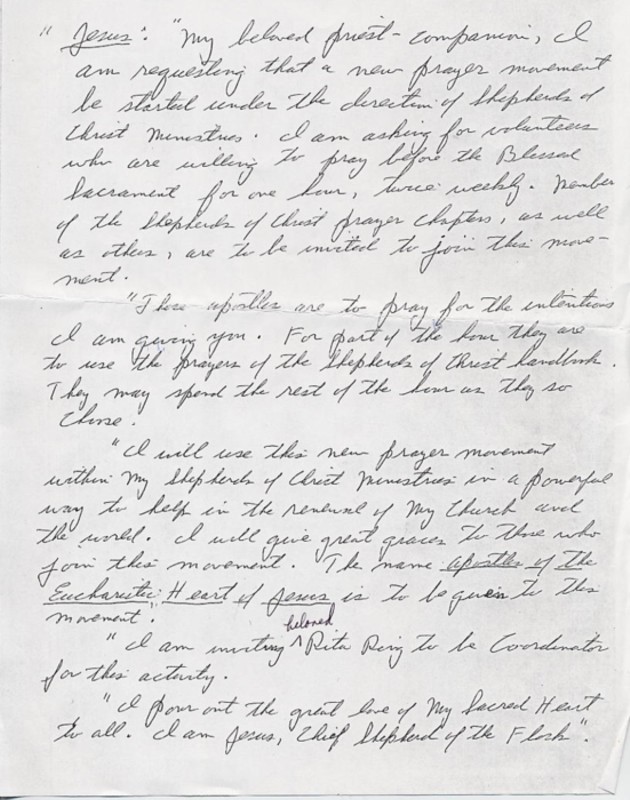 " Jesus: "My beloved priest-companion, I
am requesting that a new prayer movement
be started under the direction of Shepherds of
Christ Ministries. I am asking for volunteers
who are willing to pray before the Blessed
Sacrament for one hour, twice weekly. Member
of the Shepherds of Christ prayer chapters, as well
as others, are to be invited to join this move-
ment.
"These apostles are to pray for the intentions
I am giving you. For part of the hour they are
to use the prayers of the Shepherds of Christ handbook.
They may spend the rest of the hour as they so
choose.
"I will use this new prayer movement
within My Shepherds of Christ Ministries in a powerful
way to help in the renewal of My Church and
the world. I will give great graces to those who
join this movement. The name apostles of the
Eucharistic Heart of Jesus is to be given to this
movement.
"I am inviting beloved Rita Ring to be Coordinator
for this activity.
"I pour out the great love of My Sacred Heart
to all. I am Jesus, Chief Shepherd of the Flock".